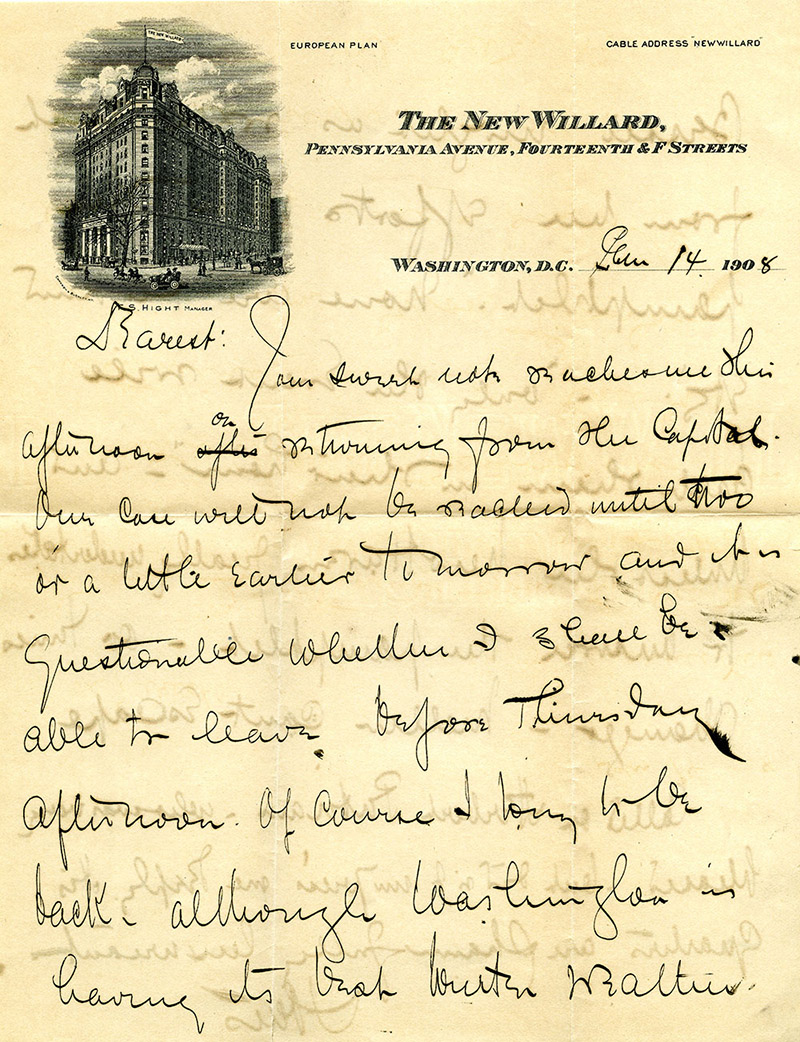 THE NEW WILLARD
EUROPEAN PLAN
CABLE ADDRESS "NEWWILLARD"
THE NEW WILLARD,
PENNSYLVANIA AVENUE, FOURTEENTH & F STREETS
WASHINGTON, D.C. 14 1908
F. S. HIGHT MANAGER
Dearest:
Your sweet note reaches me this
afternoon on returning from the Capitol.
Our case will not be reached until two
or a little earlier tomorrow and it is
questionable whether I shall be
able to leave before Thursday
afternoon. Of course I long to be
back - although Washington is
having its best winter weather.